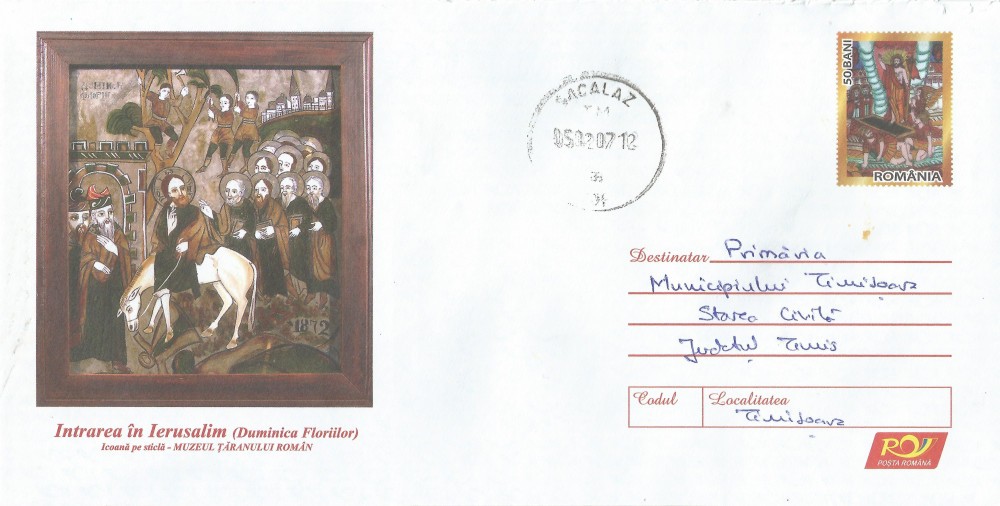 1872
Intrarea în Ierusalim (Duminica Floriilor)
Icoană pe sticlă - MUZEUL ȚĂRANULUI ROMÂN
SACALAZ
TM
050207 12
50 BANI
ROMÂNIA
Destinatar Primăria
Municipiului Timișoara
Starea Civilă
Județul Timiș
Codul
Localitatea
Timișoara
POSTA ROMÂNĂ